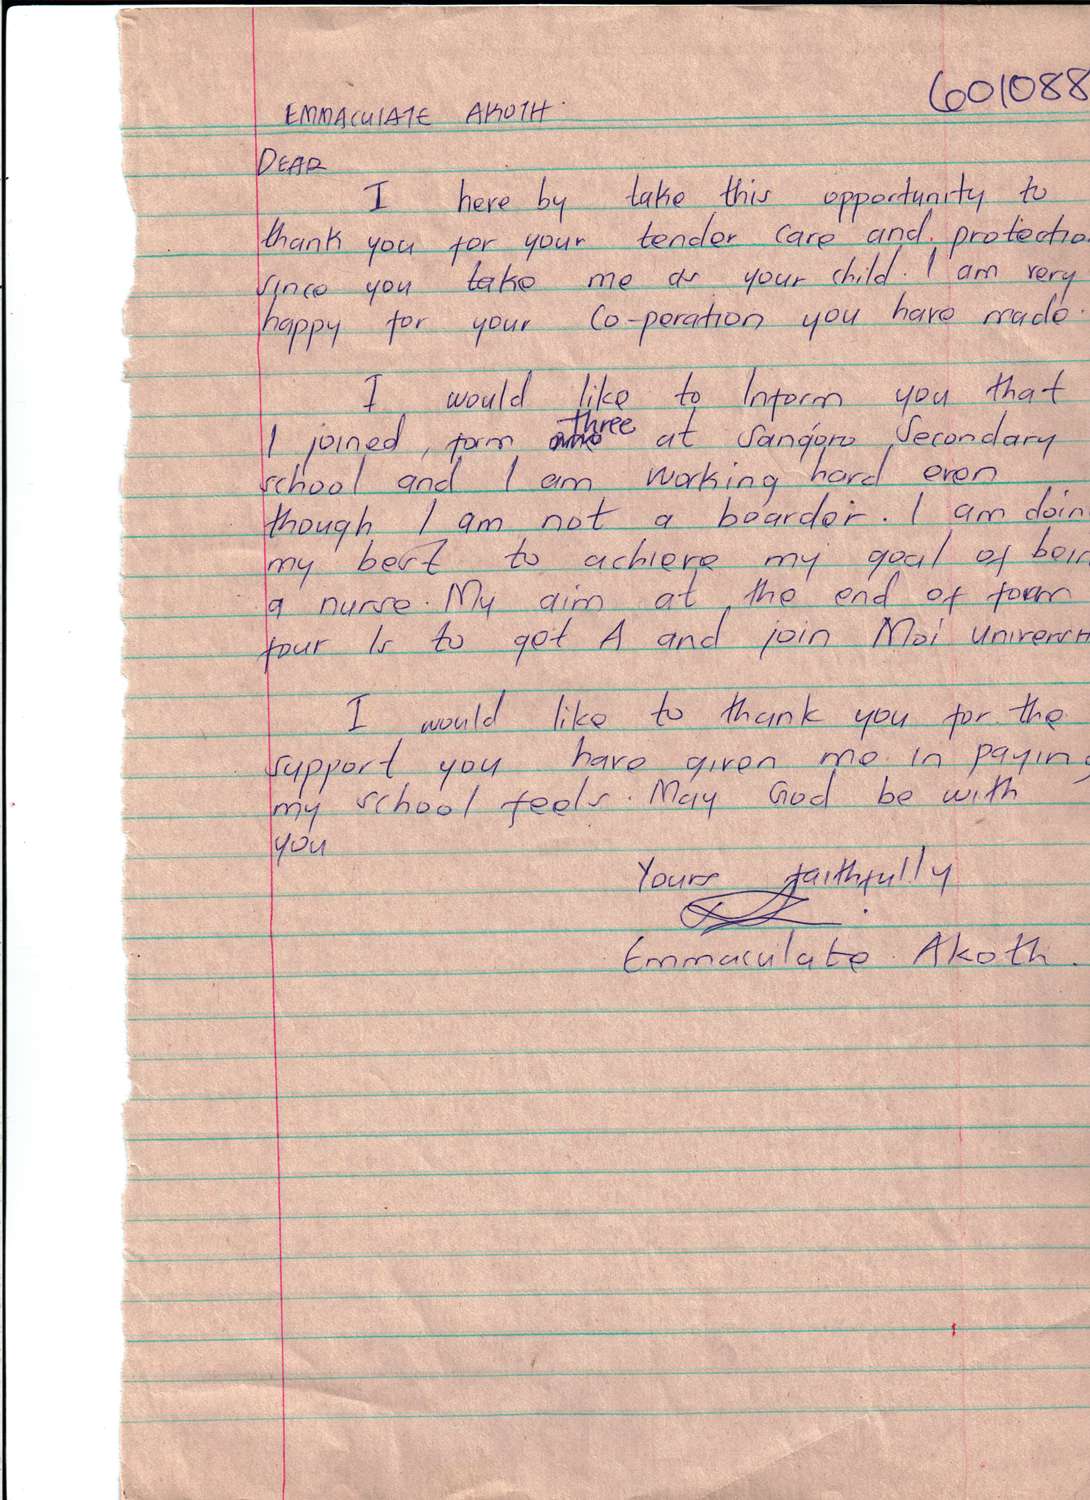 601088
EMMACULATE AKOTH.
DEAR
I here by take this opportunity to
thank you for your tender care and protectio
since you take me as your child. I am very
happy for your Co-peration you have made.
I would like to Inform you that
I joined, form three at Sang'oro Secondary
school and I am working hard even
though I am not a boarder. I am doin
my best to achieve my goal of bein
a nurse. My aim at the end of form
four Is to get A and join Moi universit
I would like to thank you for the
support you have given me in paying
my school feels. May God be with
you
Yours faithfully
Emmaculate Akoth.